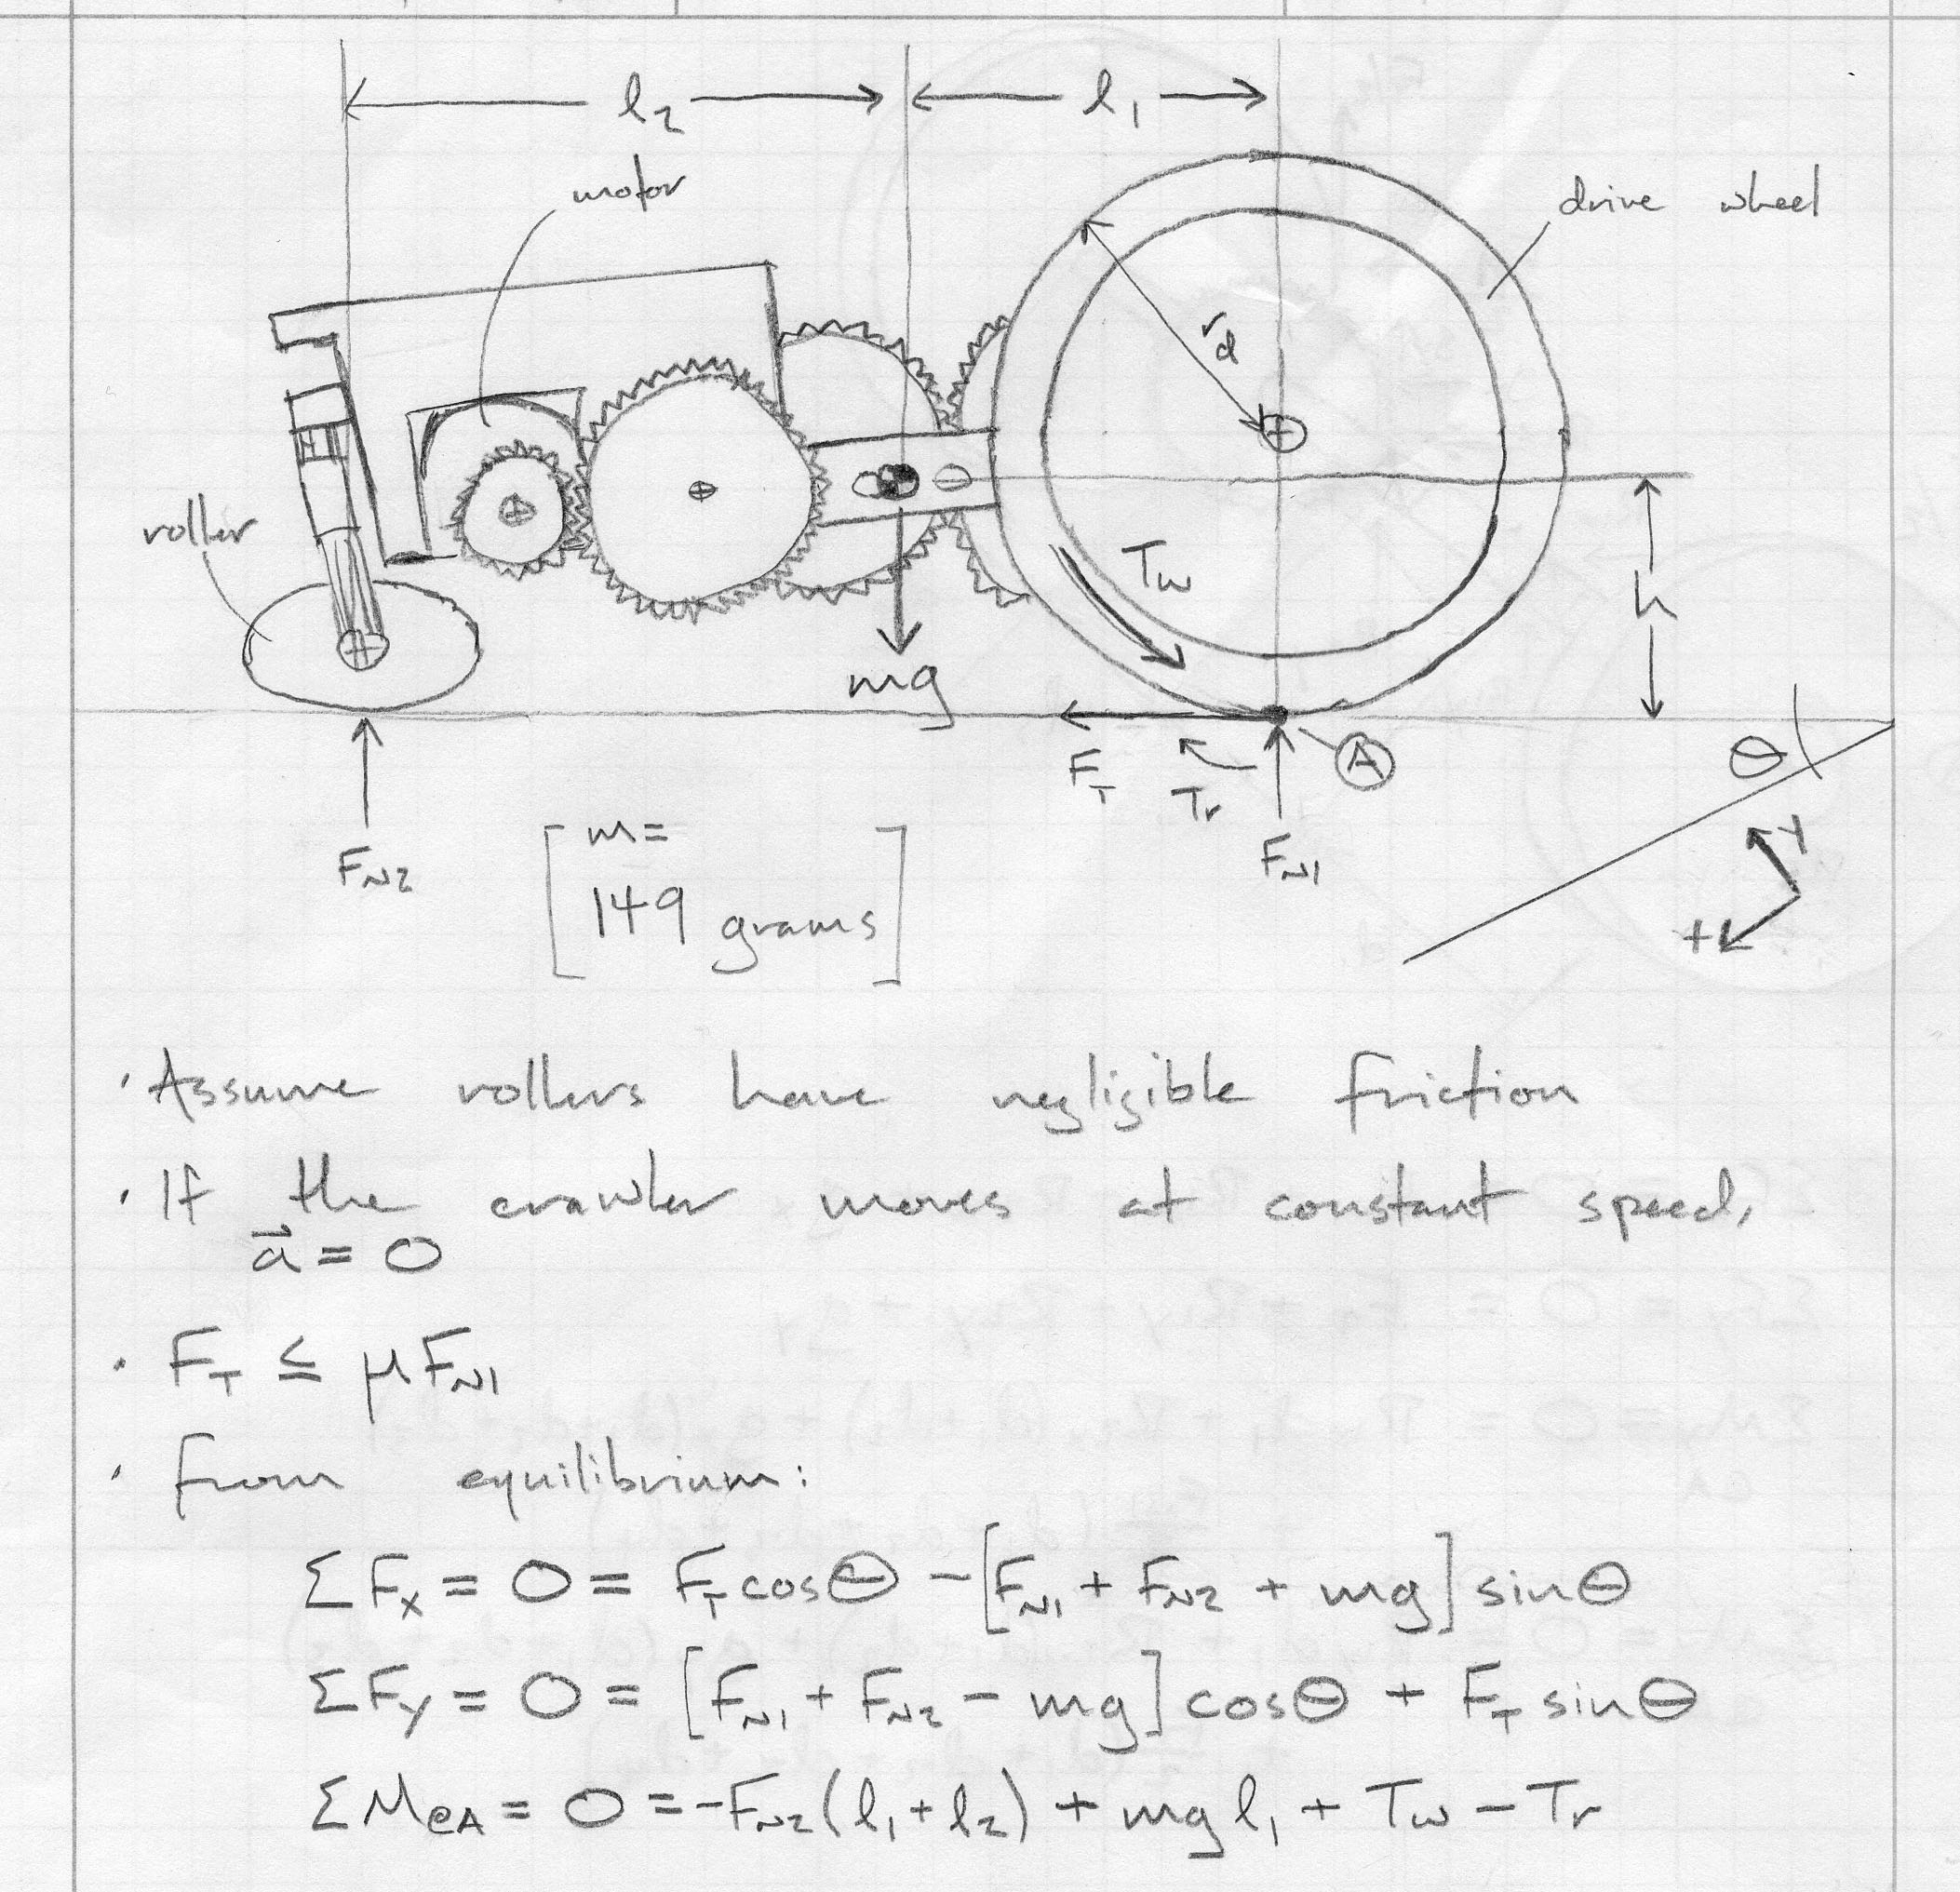 l₂ l₁
motor
drive wheel
r_d
roller
T_w
h
mg
F_T T_r A
θ
F_N2
F_N1
m =
149 grams
+
+
· Assume rollers have negligible friction
· If the crawler moves at constant speed,
a⃗ = 0
· F_T ≤ μF_N1
· From equilibrium:
ΣF_x = 0 = F_T cosθ - [F_N1 + F_N2 + mg] sinθ
ΣF_y = 0 = [F_N1 + F_N2 - mg] cosθ + F_T sinθ
ΣM_@A = 0 = -F_N2(l₁ + l₂) + mg l₁ + T_w - T_r